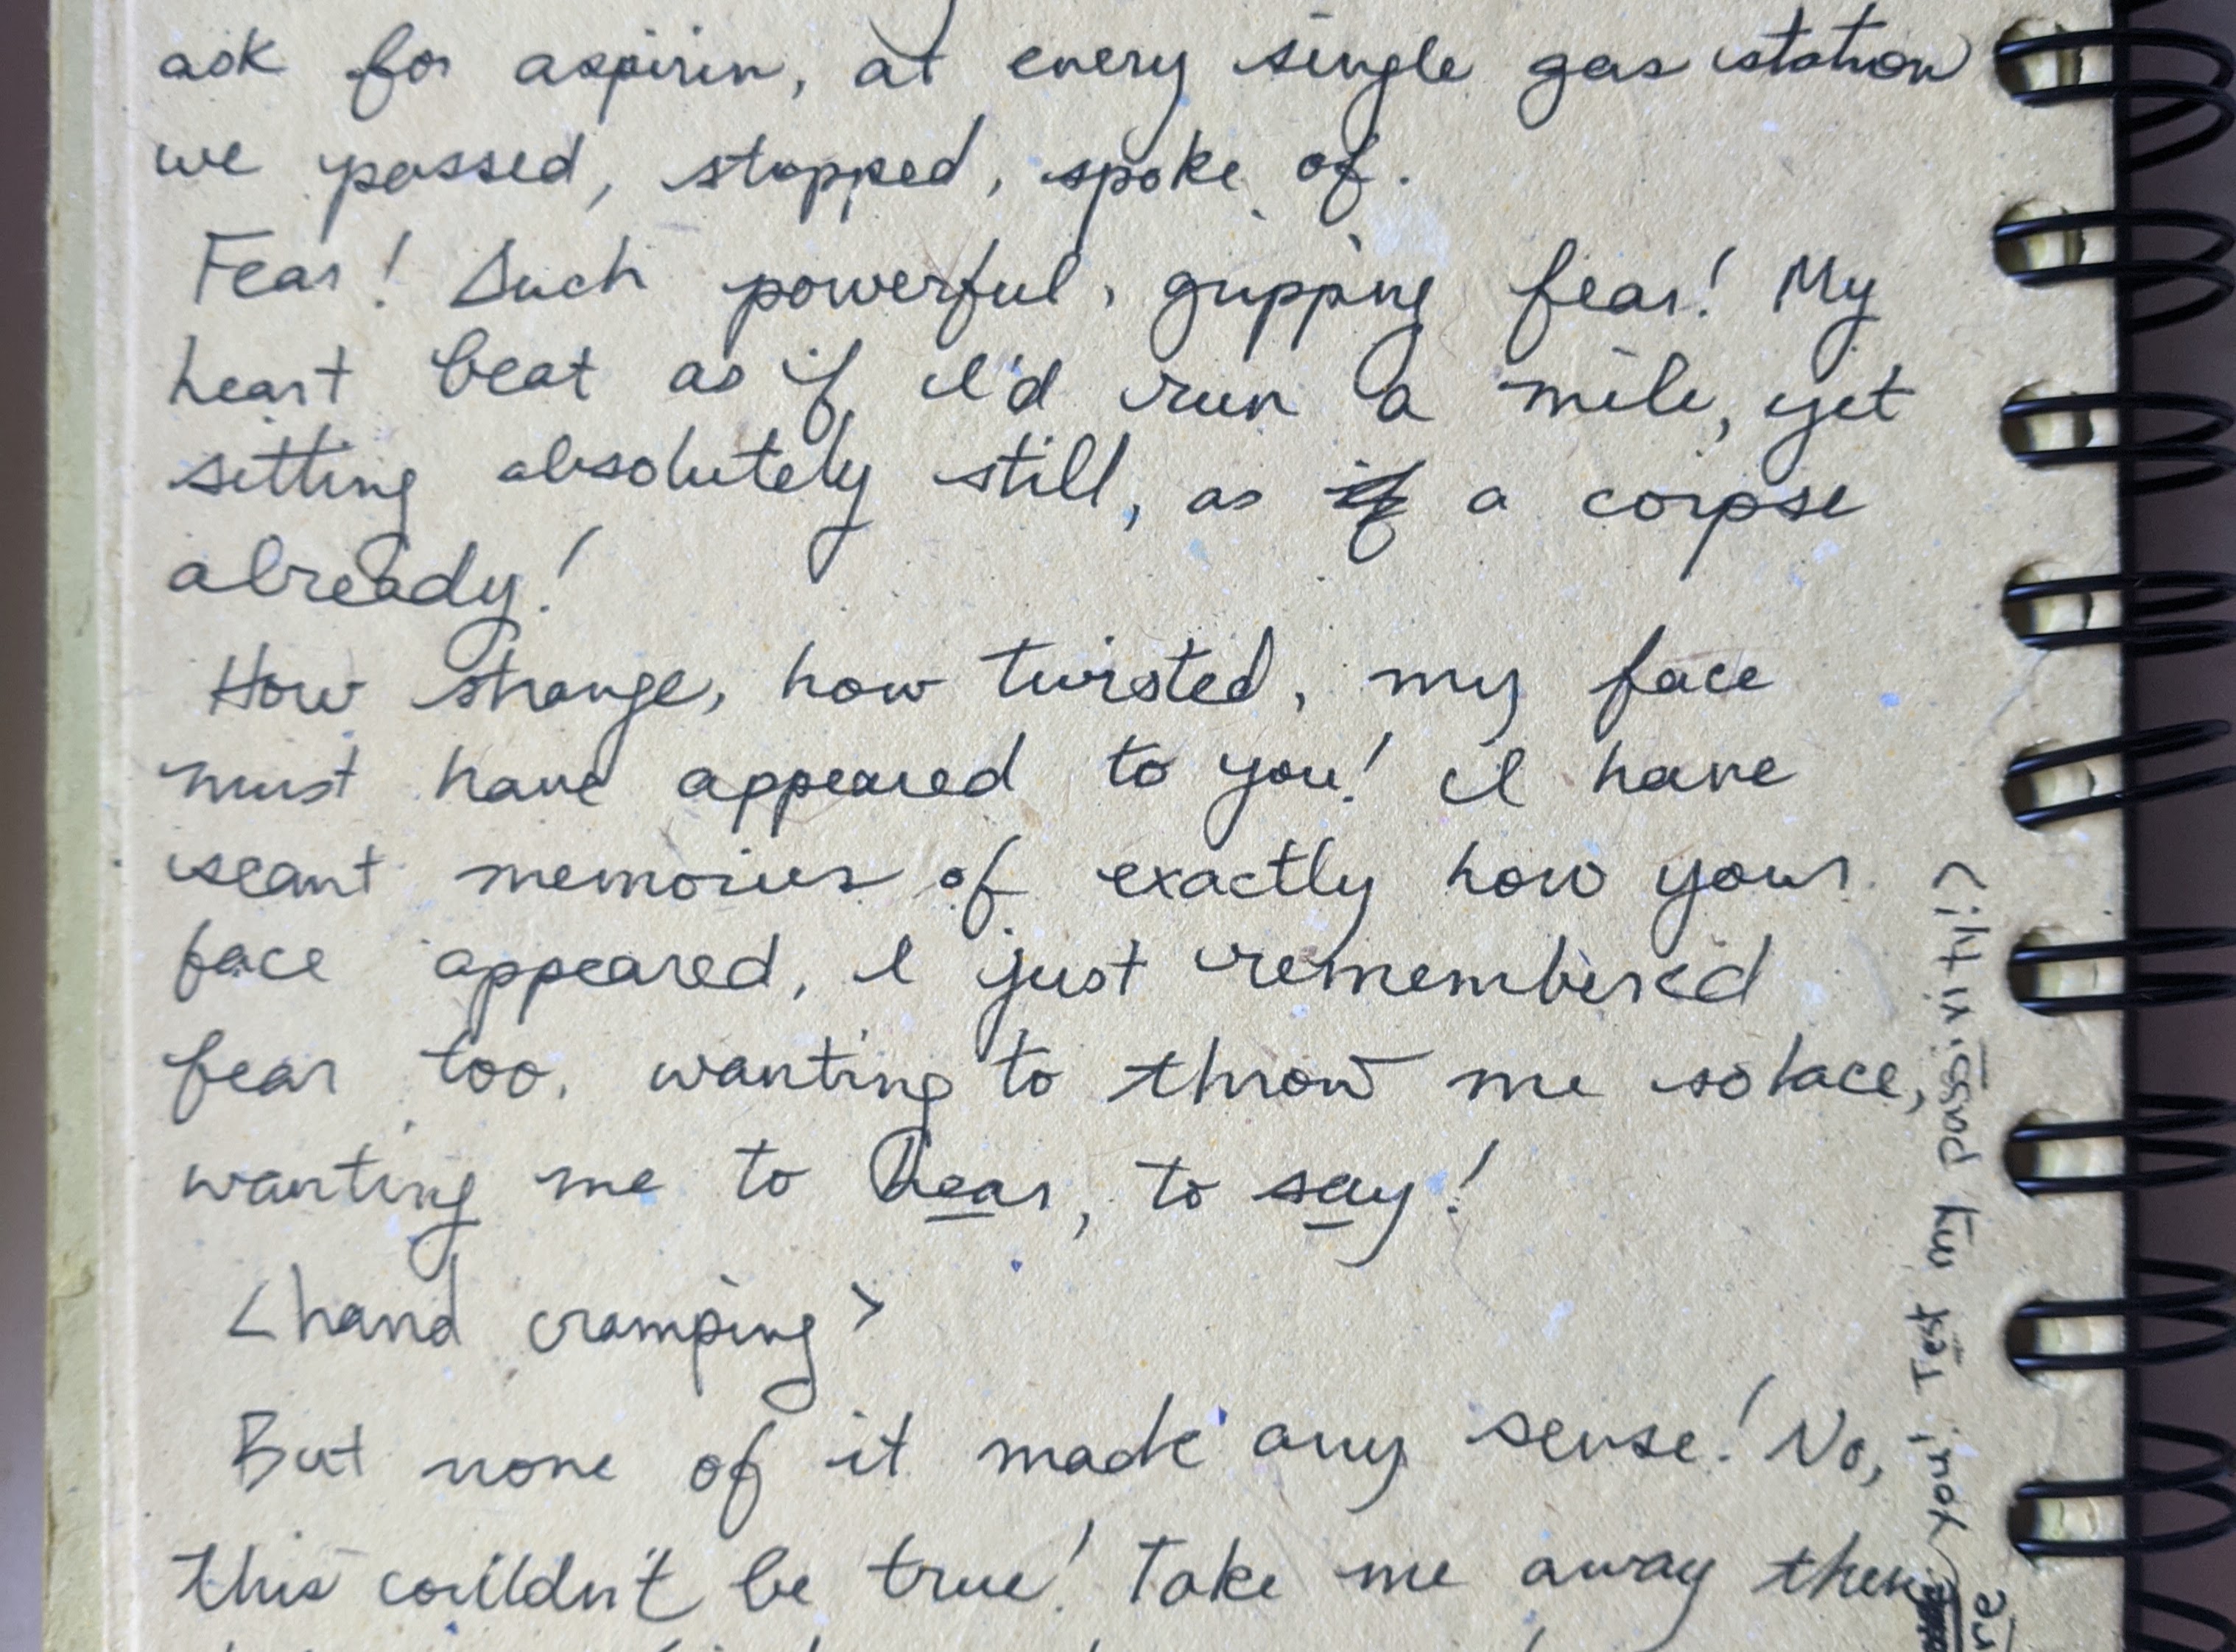 ask for aspirin, at every single gas station
we passed, stopped, spoke of.
Fear! Such powerful, gripping fear! My
heart beat as if I'd run a mile, yet
sitting absolutely still, as if a corpse
already!
How strange, how twisted, my face
must have appeared to you! I have
scant memories of exactly how your
face appeared, I just remembered
fear too, wanting to throw me solace,
wanting me to hear, to say!
<hand cramping>
But none of it made any sense! No,
this couldn't be true! Take me away then
are
your! Test my passivity!>